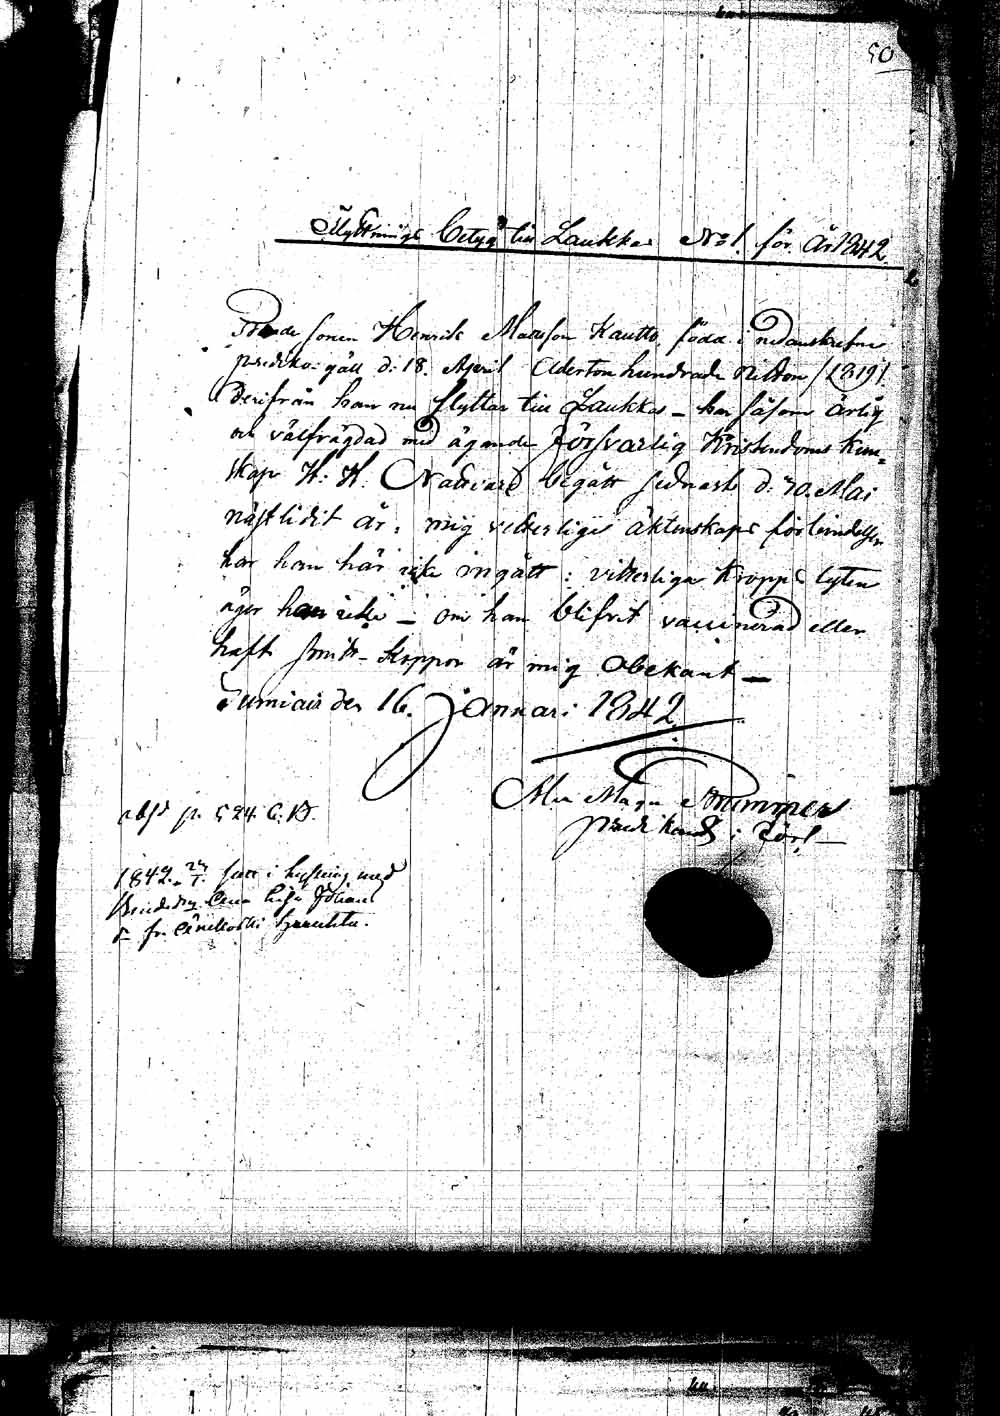 50
Flyttnings Betyg till Laukkas No 1. för År 1842.
Bonde sonen Henrik Mattsson Kautto, född i nedanskrefne
prediko-gäll d: 18. April Aderton hundrade nitton /1819/.
derifrån han nu flyttar till Laukkas – har såsom ärlig
och välfrägdad med ägande försvarlig Kristendoms Kun=
skap H: H. Nattvard begått sednast d. 30. Mai
nästlidit år: mig vetterliga äktenskaps förbindelser
har han här icke ingått: vitterliga Kropps lyten
äger han icke – om han blifvit vaccinerad eller
haft smitt-Koppor är mig obekant –
den 16. Januari 1842
predikant i
1842 i lysning med